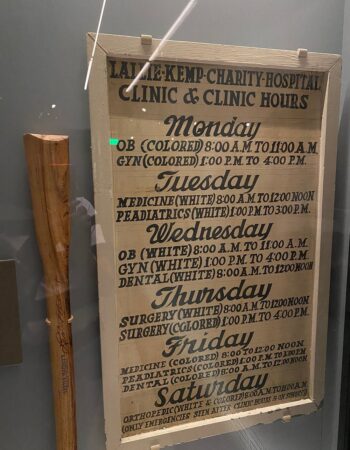 LALLIE-KEMP-CHARITY-HOSPITAL
CLINIC & CLINIC HOURS
Monday
OB (COLORED) 8:00 A.M. TO 11:00 A.M.
GYN (COLORED) 1:00 P.M. TO 4:00 P.M.
Tuesday
MEDICINE (WHITE) 8:00 A.M. TO 12:00 NOON
PEADIATRICS (WHITE) 1:00 P.M. TO 3:00 P.M.
Wednesday
OB (WHITE) 8:00 A.M. TO 11:00 A.M.
GYN (WHITE) 1:00 P.M. TO 4:00 P.M.
DENTAL (WHITE) 8:00 A.M. TO 12:00 NOON
Thursday
SURGERY (WHITE) 8:00 A.M. TO 12:00 NOON
SURGERY (COLORED) 1:00 P.M. TO 4:00 P.M.
Friday
MEDICINE (COLORED) 8:00 TO 12:00 NOON
PEADIATRICS (COLORED) 1:00 P.M. TO 3:00 P.M.
DENTAL (COLORED) 8:00 A.M. TO 12:00 NOON
Saturday
ORTHOPEDIC (WHITE & COLORED) 8:00 A.M. TO 11:00 A.M.
(ONLY EMERGENCIES SEEN AFTER CLINIC HOURS & ON SUNDAY)